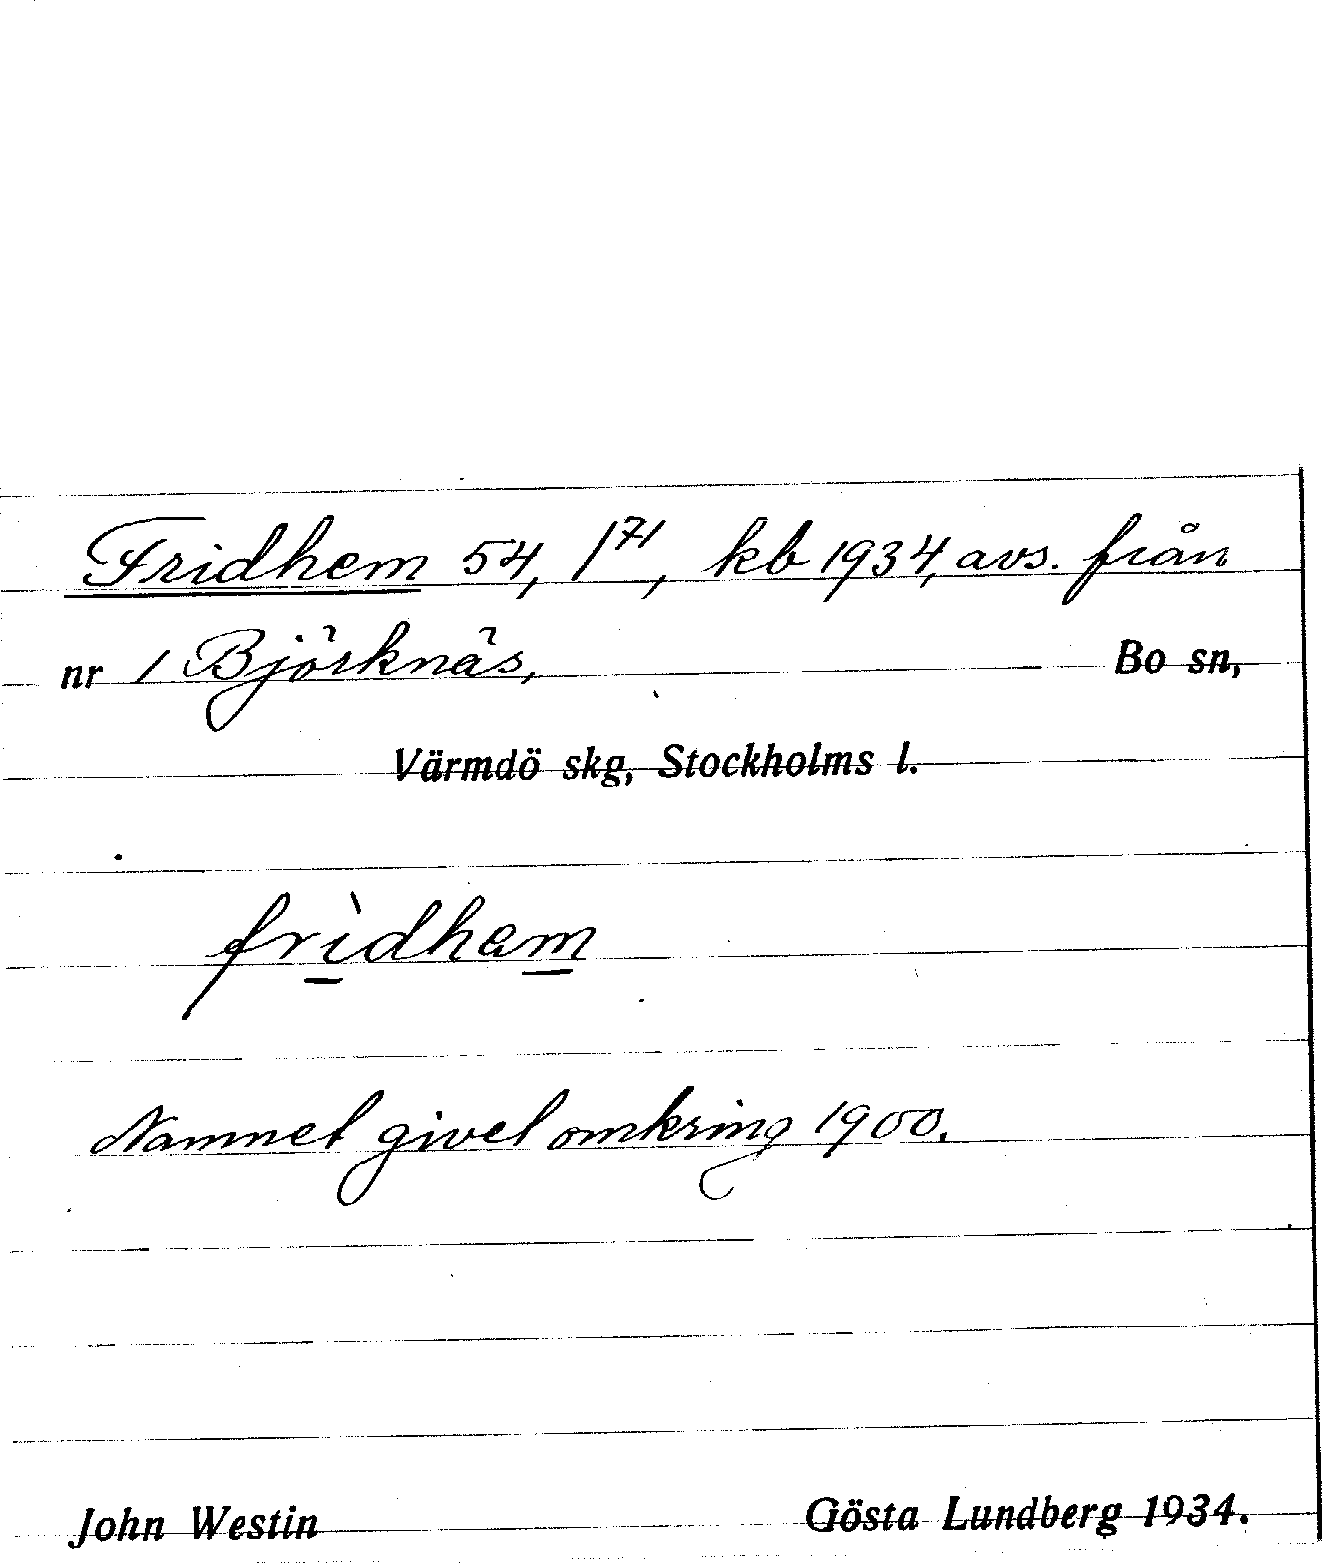 Fridhem 54, 1⁷¹, kb 1934, avs. från
nr 1 Björknäs, Bo sn,
Värmdö skg, Stockholms l.
frìdhem
Namnet givet omkring 1900.
John Westin Gösta Lundberg 1934.